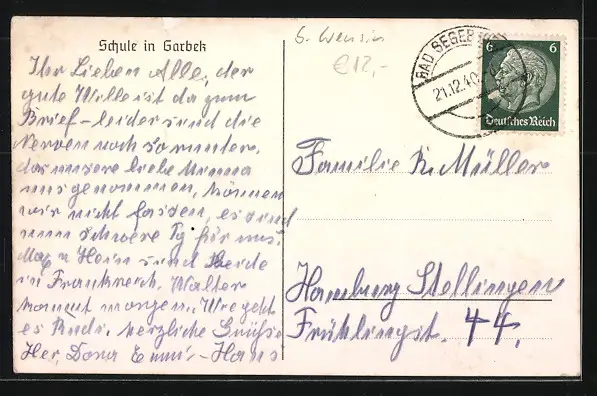 Schule in Garbek
Ihr Lieben Alle, der
gute Wille ist da zum
Brief - leider sind die
Nerven noch so runter,
das unsere liebe Minna
uns genommen, können
wir nicht fassen, es sind
nun schwere Tg für uns.
Max u Hein sind Beide
in Frankreich. Walter
kommt morgen. Wie geht
es Rudi. Herzliche Grüße
Her, Dora Emmi - Hans
G. Wensin
€12,-
BAD SEGEB
21.12.40
6 6
Deutsches Reich
Familie R. Müller
Hamburg Stellingen
Frühlingst. 44.